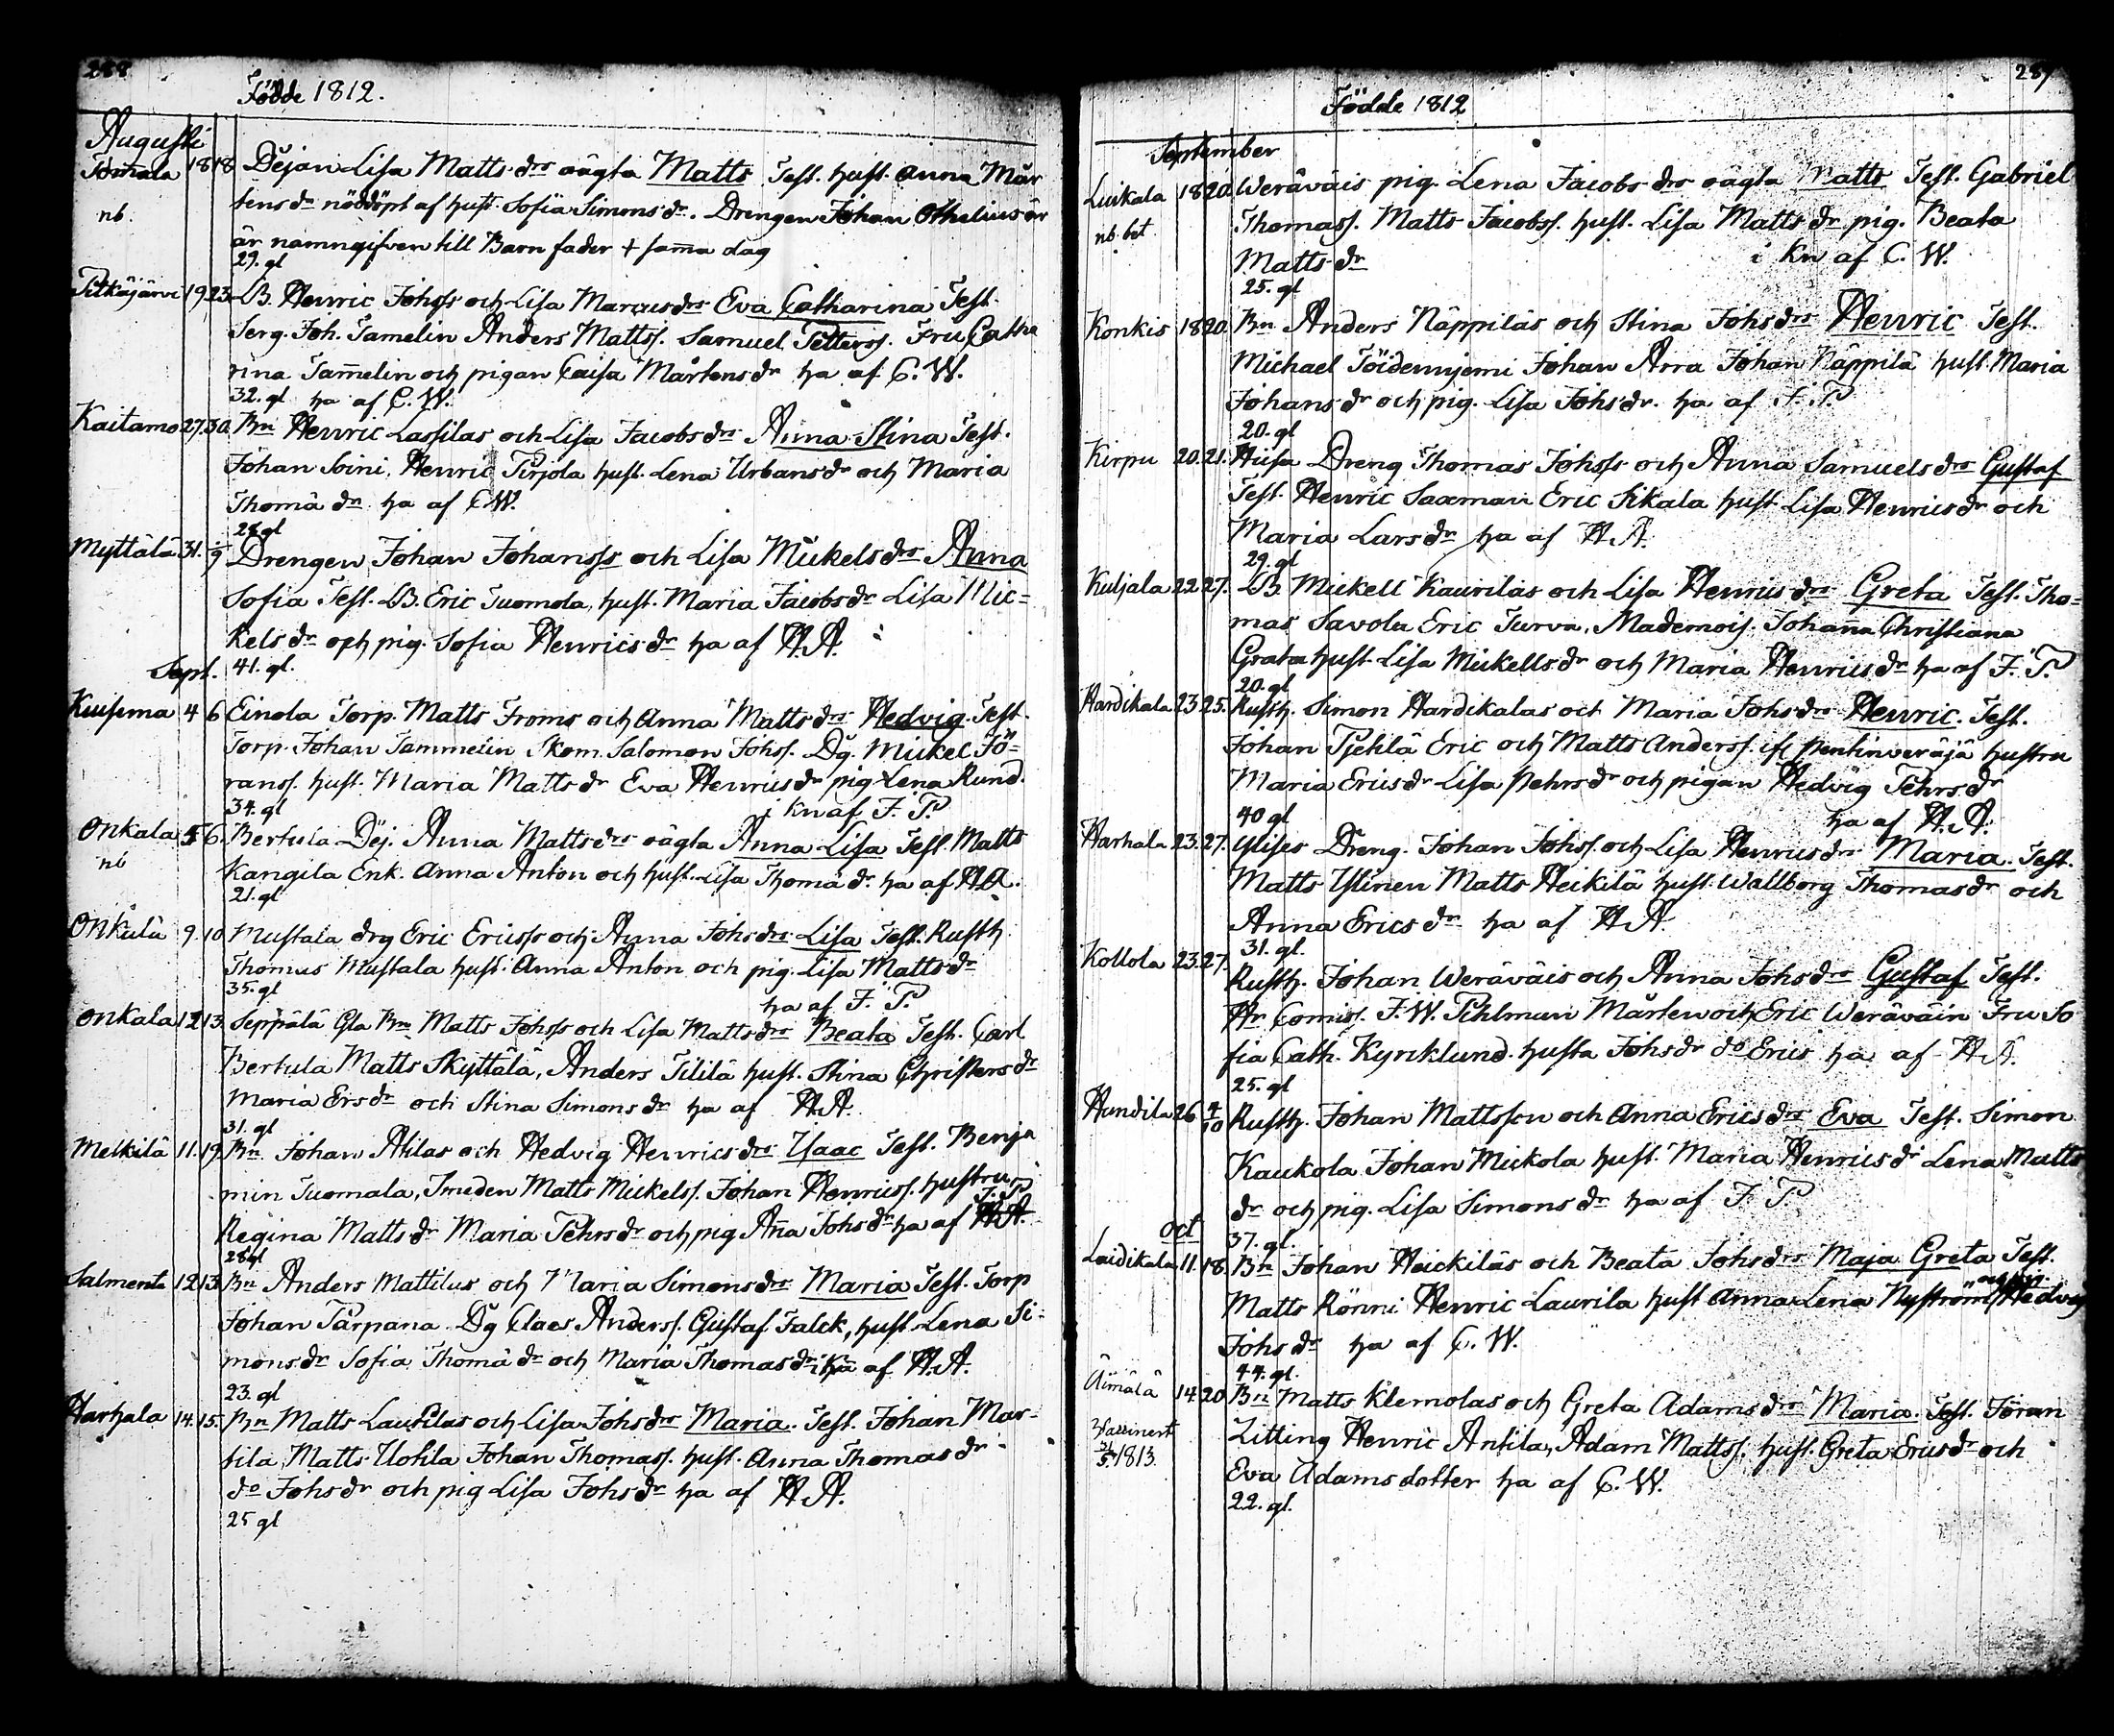 288
Födde 1812.
Augusti
Tömala 18 18 Dejan Lisa Matts drs oägta Matts Test. hust. Anna Mår
nb. tens dr nöddöpt af hust. Sofia Simons dr. Drengen Johan Othelius är
är namngifven till Barn fader + samma dag
29. gl
Pitkäjärvi 19 23 LB. Henric Johss och Lisa Marcus drs Eva Catharina Test.
Serg. Joh. Tamelin Anders Mattss. Samuel Petterss. Fru Catha
rina Tam̄elin och pigan Caisa Mårtens dr ha af C. W.
32. gl ha af C. W.
Kaitamo 27 30. Bn Henric Lassilas och Lisa Jacobs drs Anna Stina Test.
Johan Soini, Henric Pirjola hust. Lena Urbans dr och Maria
Thomæ dr ha af C W.
28 gl
Myttälä 31. 9 Drengen Johan Johanss och Lisa Mickels drs Anna
Sofia Test. LB. Eric Tuomola, hust. Maria Jacobs dr Lisa Mic=
kels dr och pig. Sofia Henrics dr ha af H. A.
Sept. 41. gl.
Kuusema 4 6 Einola Torp. Matts Froms och Anna Matts drs Hedvig Test.
Torp. Johan Tammelin Skom. Salomon Johss. Dg. Mickel Jö=
ranss. hust. Maria Matts dr Eva Henrics dr pig Lena Rund.
34. gl i kn af F. P.
Onkala 5 6. Bertula Dej. Anna Matts drs oägta Anna Lisa Test. Matts
nb Kangila Enk. Anna Anton och hust. Lisa Thomæ dr ha af H A.
21. gl
Onkala 9. 10 Mustala drg Eric Ericss och Anna Johs drs Lisa Test. Rusth
Thomas Mustala hust. Anna Anton och pig. Lisa Matts dr
35. gl ha af F. P.
Onkala 12 13. Seppälä Gla Bn Matts Johss och Lisa Matts drs Beata Test. Carl
Bertula Matts Skyttälä, Anders Tililä hust. Stina Christers dr
Maria Ers dr och Stina Simons dr ha af H A.
31. gl
Melkilä 11. 19. Bn Johan Atilas och Hedvig Henrics drs Isaac Test. Benja
min Tuomala, Smeden Matts Mickelss. Johan Henricss. hustru
Regina Matts dr Maria Pehrs dr och pig An̄a Johs dr ha af F. P.
28 gl
Salmenta 12 13. Bn Anders Mattilas och Maria Simons drs Maria Test. Torp
Johan Tärpana Dg Claes Anderss. Gustaf Falck, hust Lena Si=
mons dr Sofia Thomæ dr och Maria Thomas dr i kn af H. A.
23. gl
Harhala 14. 15. Bn Matts Laurilas och Lisa Johs drs Maria. Test. Johan Mar-
tila Matts Uotila Johan Thomass. hust. Anna Thomas dr
do Johs dr och pig Lisa Johs dr ha af H A.
25 gl
289
Födde 1812
September
Luikala 18 20. Weräväis pig. Lena Jacobs drs oägta Matts Test. Gabriel
nb. bet Thomass. Matts Jacobss. hust. Lisa Matts dr pig. Beata
Matts dr i kn af C. W.
25. gl
Konkis 18 20. Bn Anders Näppiläs och Stina Johs drs Henric Test.
Michael Töidenniemi Johan Arra Johan Näppilä hust. Maria
Johans dr och pig. Lisa Johs dr. ha af F. P.
20. gl
Kirpu 20. 21. Hiisa Dreng Thomas Johss och Anna Samuels drs Gustaf
Test. Henric Saxman Eric Sikala hust Lisa Henrics dr och
Maria Lars dr ha af H A.
29. gl
Kuljala 22 27. LB. Mickell Kaurilas och Lisa Henrics drs Greta Test. Tho=
mas Savola Eric Turva, Mademois. Johan̄a Christiana
hust. Lisa Mickells dr och Maria Henrics dr ha af F. P.
20. gl
Handikala 23 25. Rusth. Simon Handikalas och Maria Johs drs Henric. Test.
Johan Pjehlä Eric och Matts Anderss. ifr Pentinveräjä hustru
Maria Erics dr Lisa Pehrs dr och pigan Hedvig Pehrs dr
40 gl ha af H. A.
Harhala 23. 27. Ylises Dreng. Johan Johss. och Lisa Henrics drs Maria. Test.
Matts Ylinen Matts Heikilä hust. Wallborg Thomas dr och
Anna Erics dr ha af H A.
31. gl.
Kollola 23. 27. Rusth. Johan Weräväis och Anna Johs drs Gustaf Test.
Hr Comiss. F. W. Pihlman Mårten och Eric Weräväin Fru So
fia Cath. Kyrcklund. husta Johs dr do Erics ha af H A.
25. gl
Hundila 26 4/10 Rusth. Johan Mattsson och Anna Erics drs Eva Test. Simon
Kaukola Johan Mickola hust. Maria Henrics dr Lena Matts
dr och pig. Lisa Simons dr ha af F. P.
Oct 37. gl.
Laidikala 11. 18. Bn Johan Heickiläs och Beata Johs drs Maja Greta Test.
Matts Rönni Henric Laurila hust Anna Lena Nyström och pig. Hedvig
Johs dr ha af C. W.
44. gl.
Äimälä 14 20 Bn Matts Klemolas och Greta Adams drs Maria. Test. Jöran
Waccinert Zitting Henric Antila, Adam Mattss. hust. Greta Erics dr och
31/5 1813. Eva Adams dotter ha af C. W.
22. gl.